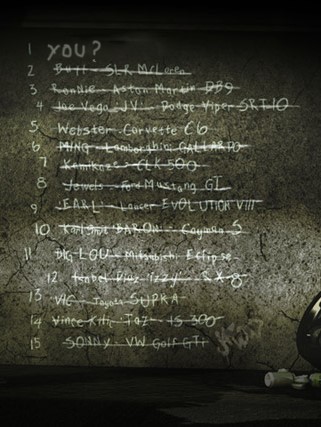 1 YOU?
2 Bull - SLR McLaren
3 Ronnie - Aston Martin DB9
4 Joe Vega JV - Dodge Viper SRT10
5 Webster - Corvette C6
6 MING - Lamborghini GALLARDO
7 Kamikaze - CLK 500
8 Jewels - Ford Mustang GT
9 EARL - Lancer EVOLUTION VIII
10 Karl Smit BARON - Cayman S
11 BIG LOU - Mitsubishi Eclipse
12 Isabel Diaz "Izzy" RX-8
13 VIC - Toyota SUPRA
14 Vince Kilic "Taz" - IS 300
15 SONNY - VW Golf GTI